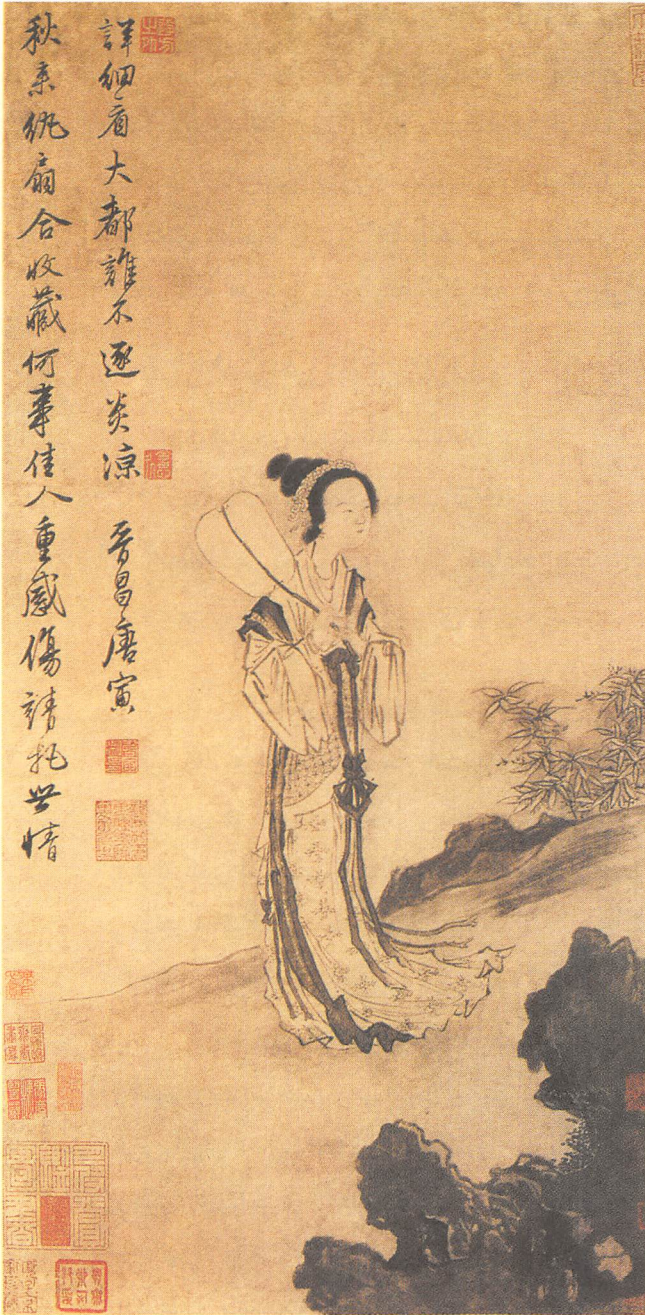 秋来紈扇合收藏何事佳人重感傷請把世情
詳細看大都誰不逐炎凉 晉昌唐寅